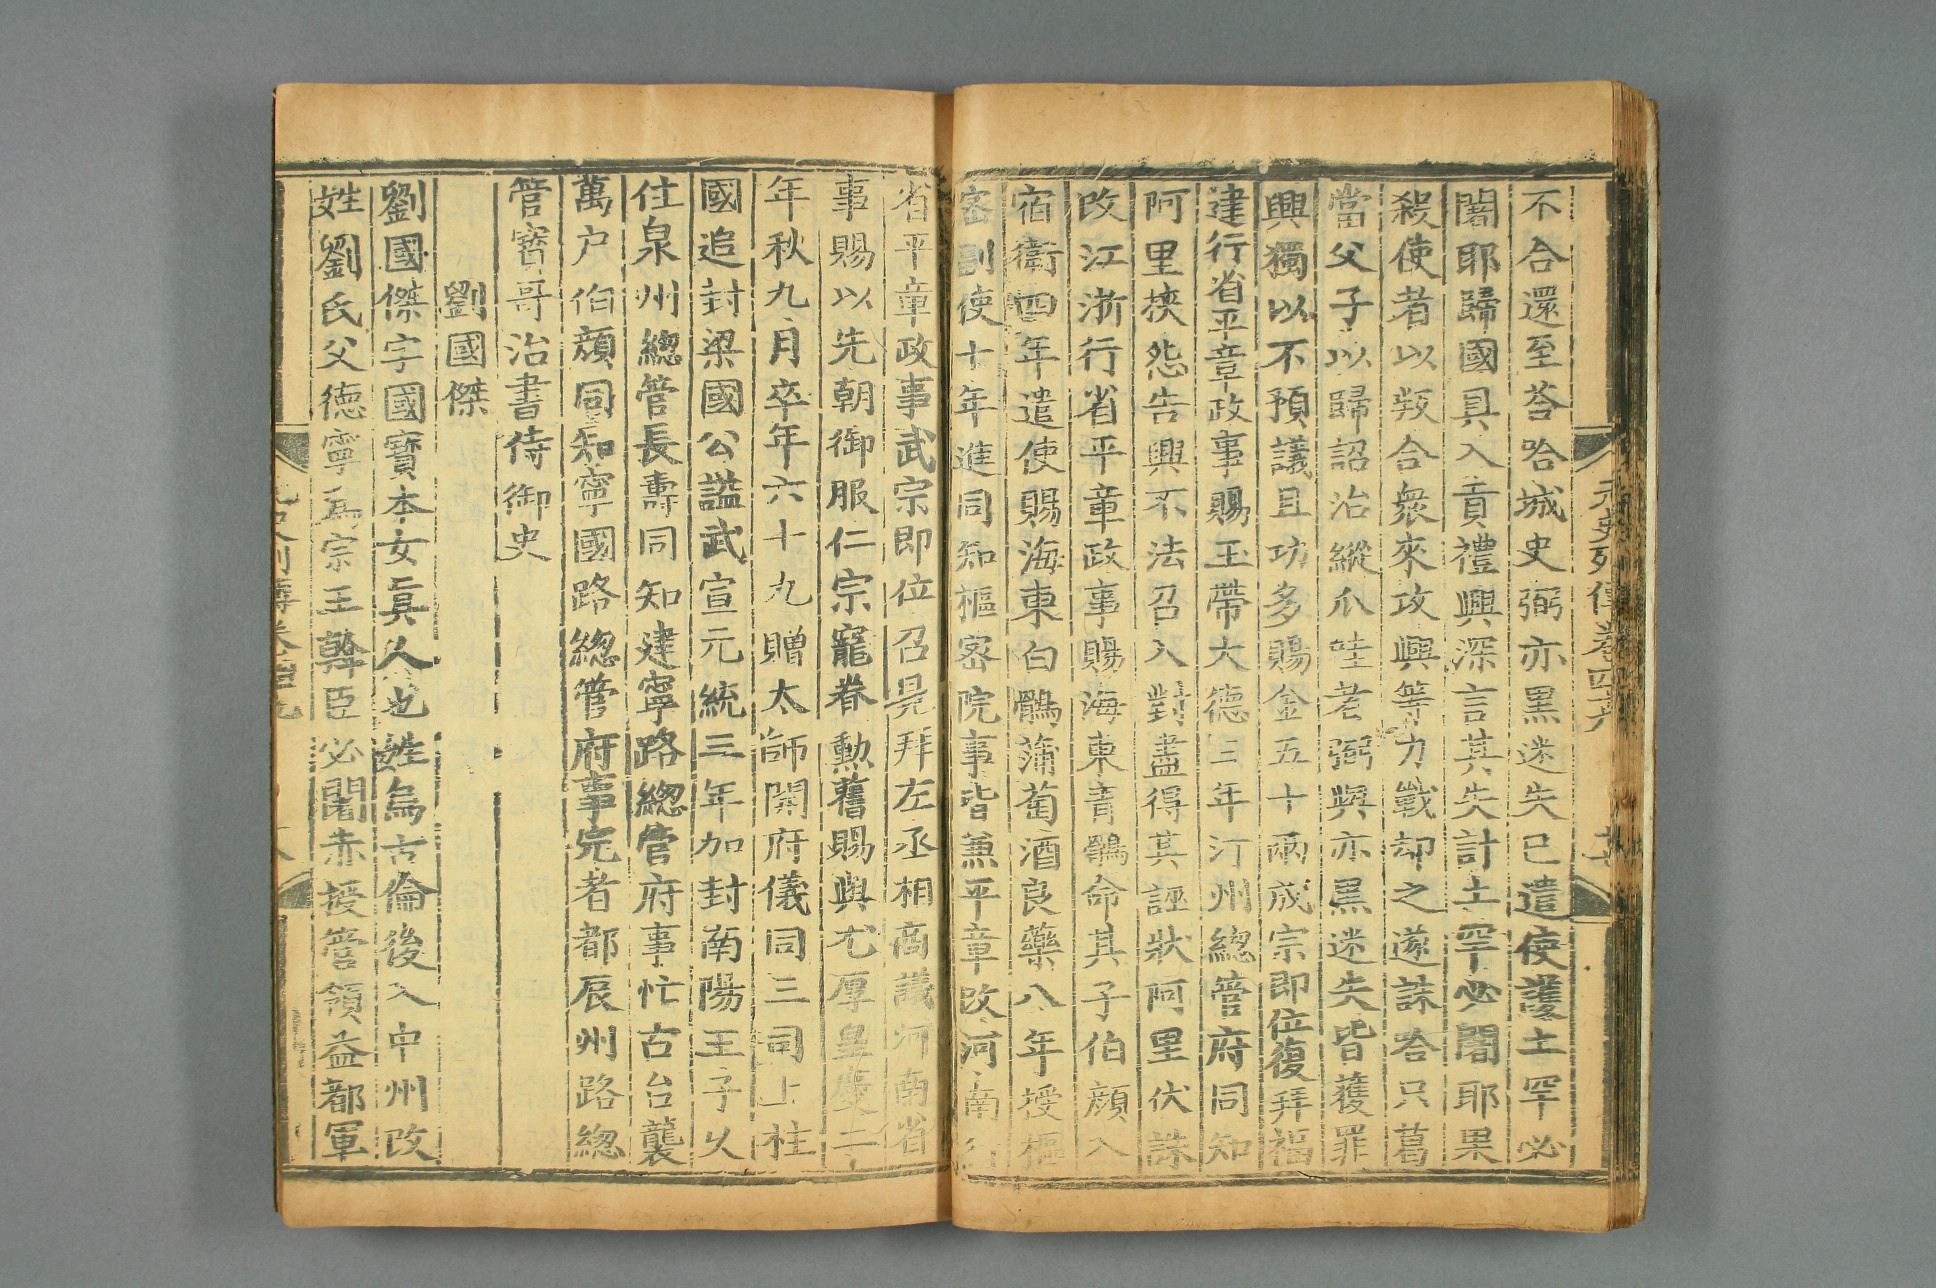 元史列傳卷四十九
不合還至荅哈城史弼亦黑迷失已遣使護土罕必
闍耶歸國具入貢禮興深言其失計土罕必闍耶果
殺使者以叛合衆來攻興等力戰却之遂誅哈只葛
當父子以歸詔治縱爪哇者弼與亦黑迷失皆獲罪
興獨以不預議且功多賜金五十兩成宗即位復拜福
建行省平章政事賜玉帶大德三年汀州總管府同知
阿里挾怨告興不法召入對盡得其誣狀阿里伏誅
改江浙行省平章政事賜海東青鶻命其子伯顔入
宿衛四年遣使賜海東白鶻蒲萄酒良藥八年授樞
密副使十年進同知樞密院事皆兼平章改河南行
省平章政事武宗即位召見拜左丞相商議河南省
事賜以先朝御服仁宗寵眷勳舊賜與尤厚皇慶二
年秋九月卒年六十九贈太師開府儀同三司上柱
國追封梁國公謚武宣元統三年加封南陽王子火
住泉州總管長壽同知建寧路總管府事忙古台襲
萬户伯顔同知寧國路總管府事完者都辰州路總
管寳哥治書侍御史
劉國傑
劉國傑字國寶本女真人也姓烏古倫後入中州改
姓劉氏父德寧爲宗王斡臣必闍赤授管領益都軍